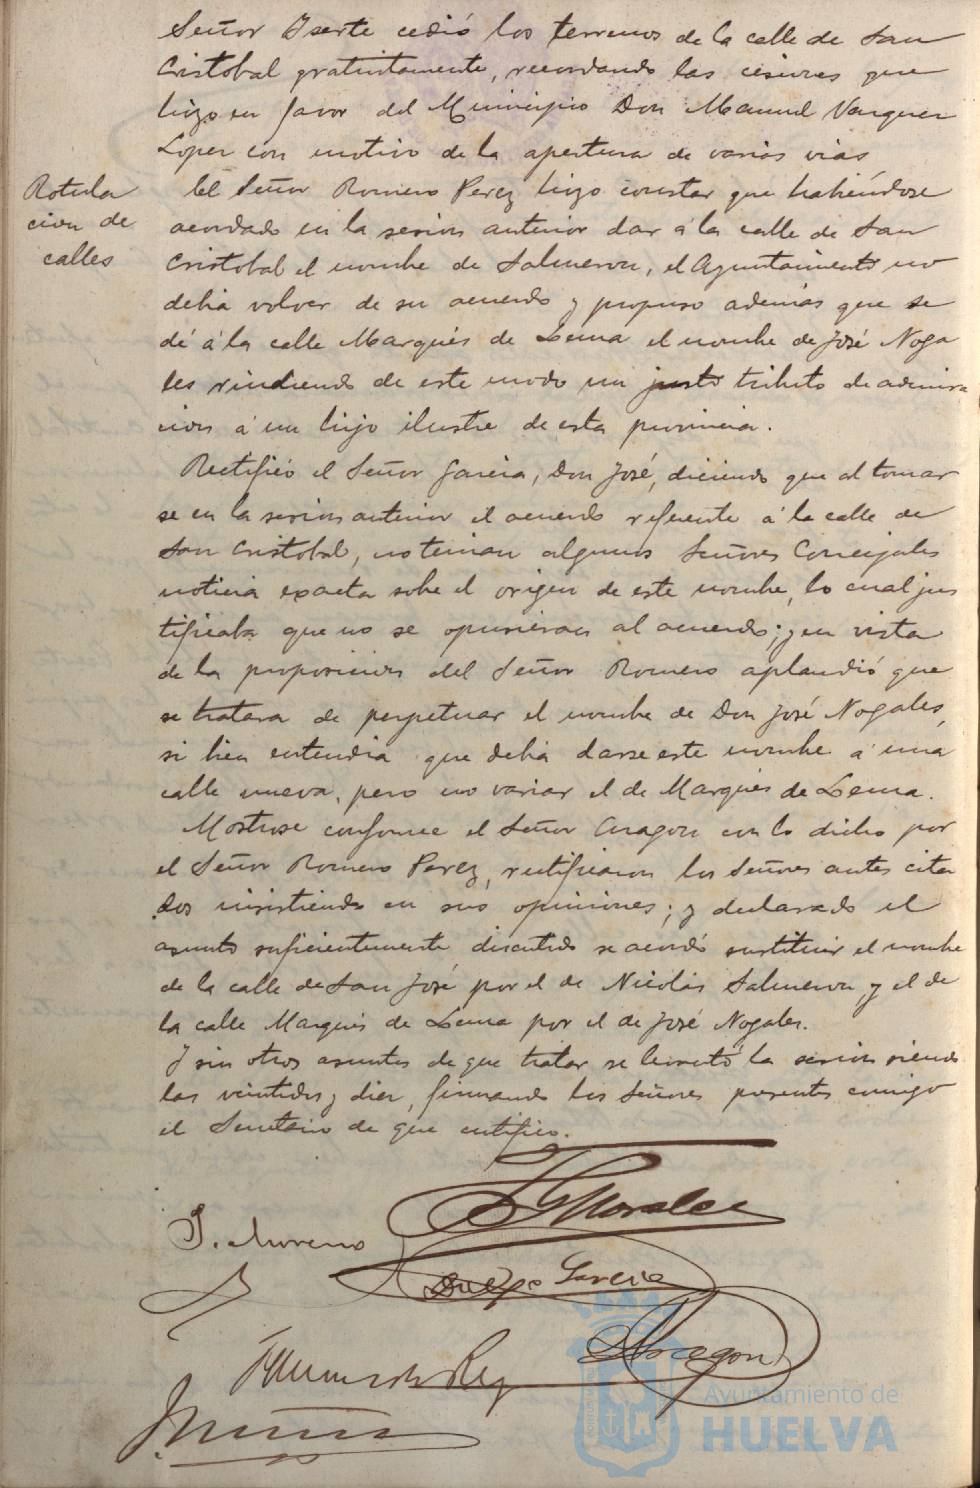 Señor Iserte cedió los terrenos de la calle de San
Cristobal gratuitamente, recordando las cesiones que
hizo en favor del Municipio Don Manuel Vazquez
Lopez con motivo de la apertura de varias vias
Rotula
cion de
calles
El Señor Romero Perez hizo constar que habiéndose
acordado en la sesion anterior dar á la calle de San
Cristobal el nombre de Salmeron, el Ayuntamiento no
debia volver de su acuerdo y propuso además que se
dé á la calle Marqués de Lema el nombre de José Noga
les rindiendo de este modo un justo tributo de admira
cion á un hijo ilustre de esta provincia.
Rectificó el Señor Garcia, Don José, diciendo que al tomar
se en la sesion anterior el acuerdo referente á la calle de
San Cristobal, no tenian algunos Señores Concejales
noticia exacta sobre el origen de este nombre, lo cual jus
tificaba que no se opusieran al acuerdo; y en vista
de la proposicion del Señor Romero aplaudió que
se tratara de perpetuar el nombre de Don José Nogales,
si bien entendia que debia darse este nombre á una
calle nueva, pero no variar el de Marqués de Lema.
Mostrose conforme el Señor Aragon con lo dicho por
el Señor Romero Perez, rectificaron los Señores antes cita
dos insistiendo en sus opiniones; y declarado el
asunto suficientemente discutido se acordó sustituir el nombre
de la calle de San José por el de Nicolás Salmeron y el de
la calle Marqués de Lema por el de José Nogales.
Y sin otros asuntos de que tratar se levantó la sesion siendo
las veintidos y diez, firmando los Señores presentes conmigo
el Secretario de que certifico.
Morales
J. Moreno
Garcia
Aragon
Ayuntamiento de
HUELVA